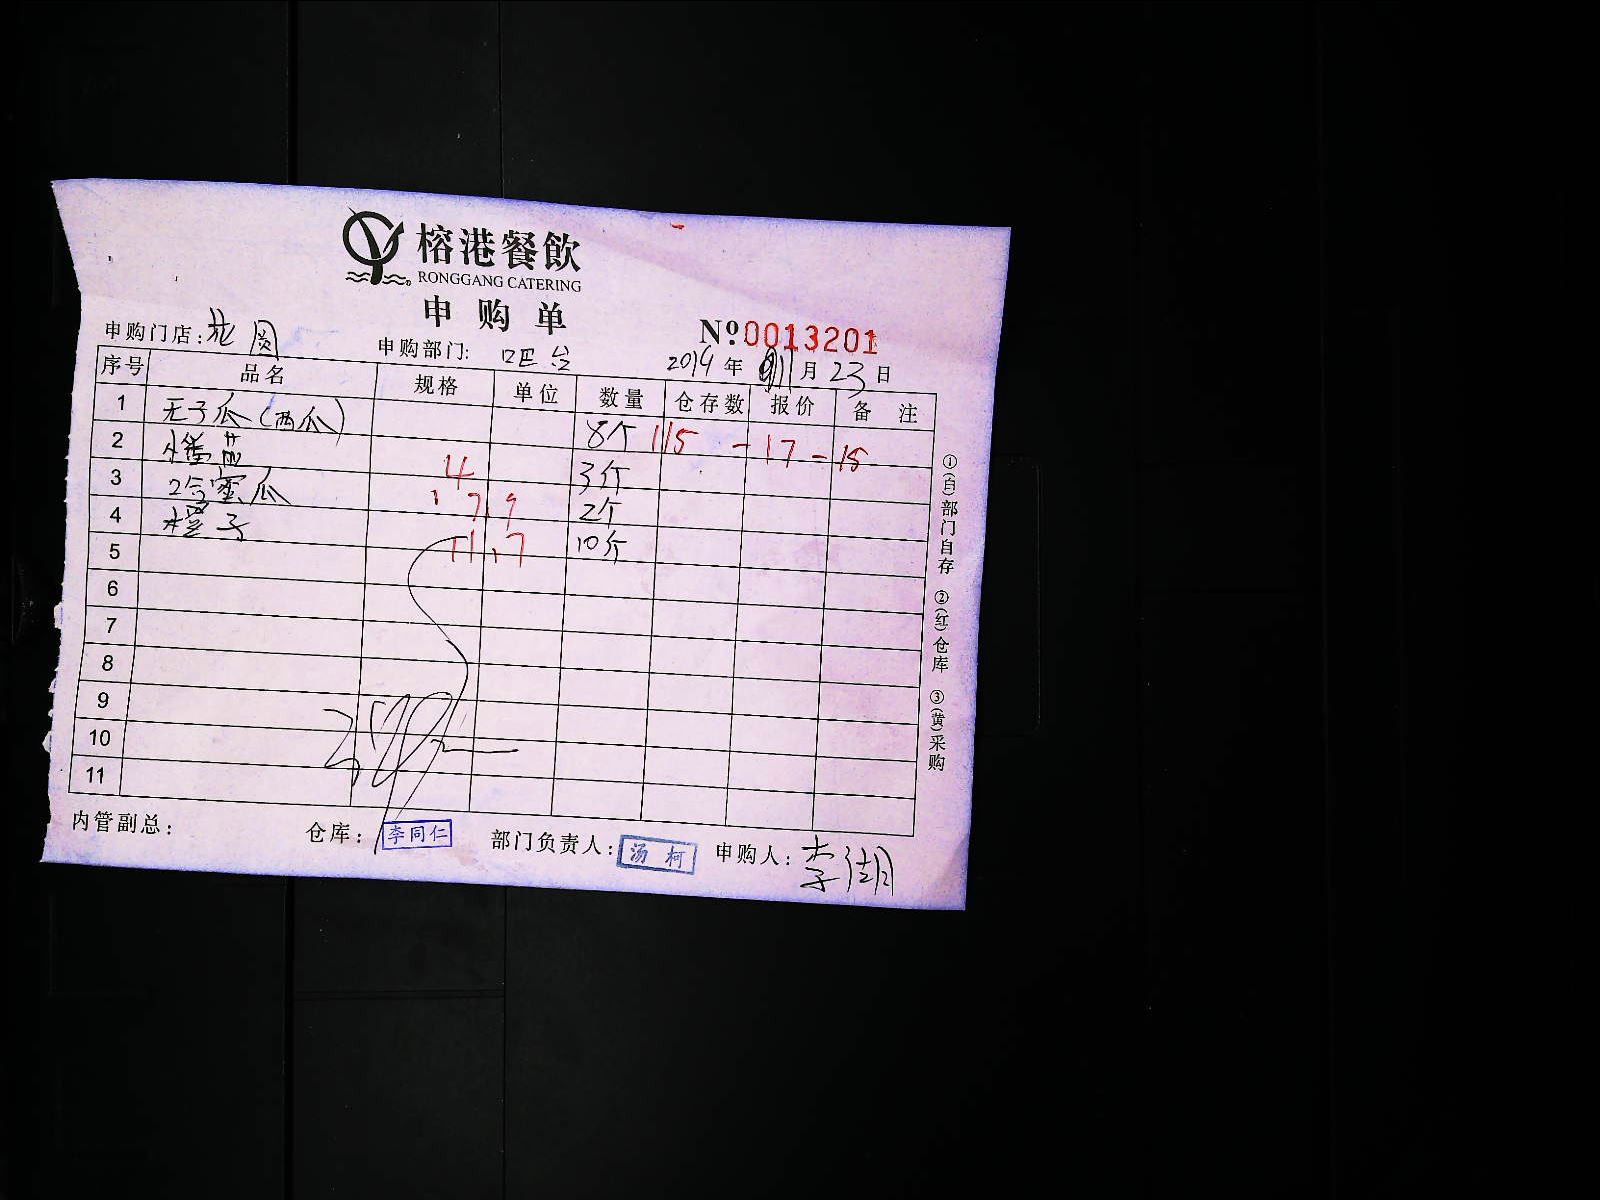 榕港餐飲
RONGGANG CATERING
申购单
申购门店: 申购部门: 吧台 № 0013201
2014年 11月23日
序号 品名 规格 单位 数量 仓存数 报价 备注
1 无子瓜(西瓜) 8个 115 - 17 - 15
2 3斤 4
3 哈蜜瓜 2个 1 79
4 橙子 10斤 11.7
5
6
7
8
9
10
11
内管副总: 仓库: 李同仁 部门负责人: 汤柯 申购人: 李湖
①(白)部门自存 ②(红)仓库 ③(黄)采购